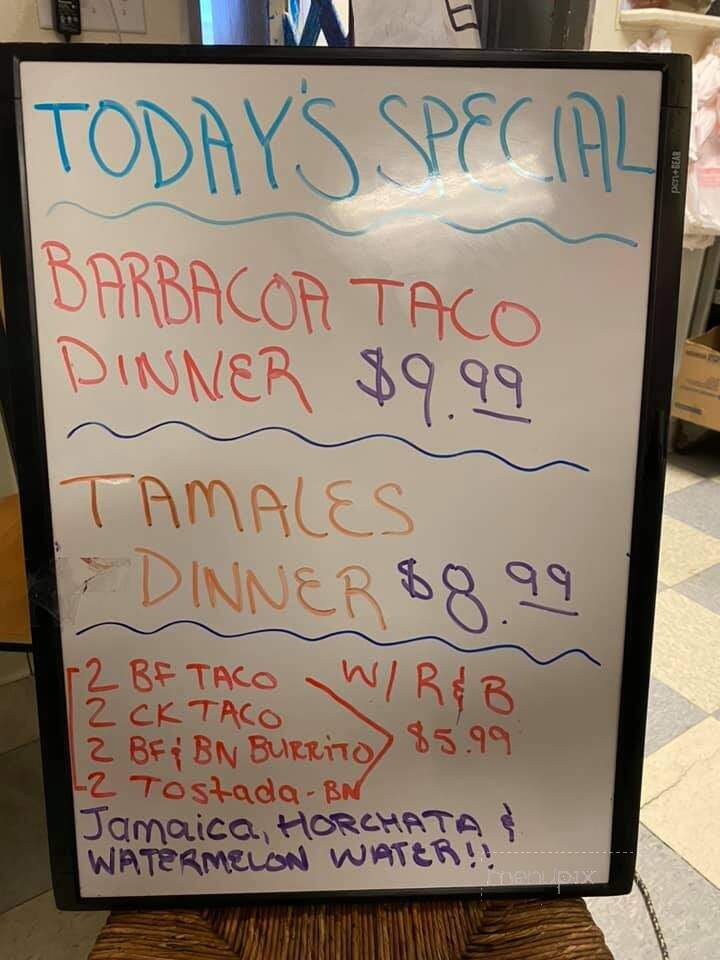 TODAY'S SPECIAL
BARBACOA TACO
DINNER $9.99
TAMALES
DINNER $8.99
2 BF TACO W/ R & B
2 CK TACO
2 BF & BN BURRITO $5.99
2 Tostada - BN
Jamaica, HORCHATA &
WATERMELON WATER!!
menupix
pen+GEAR